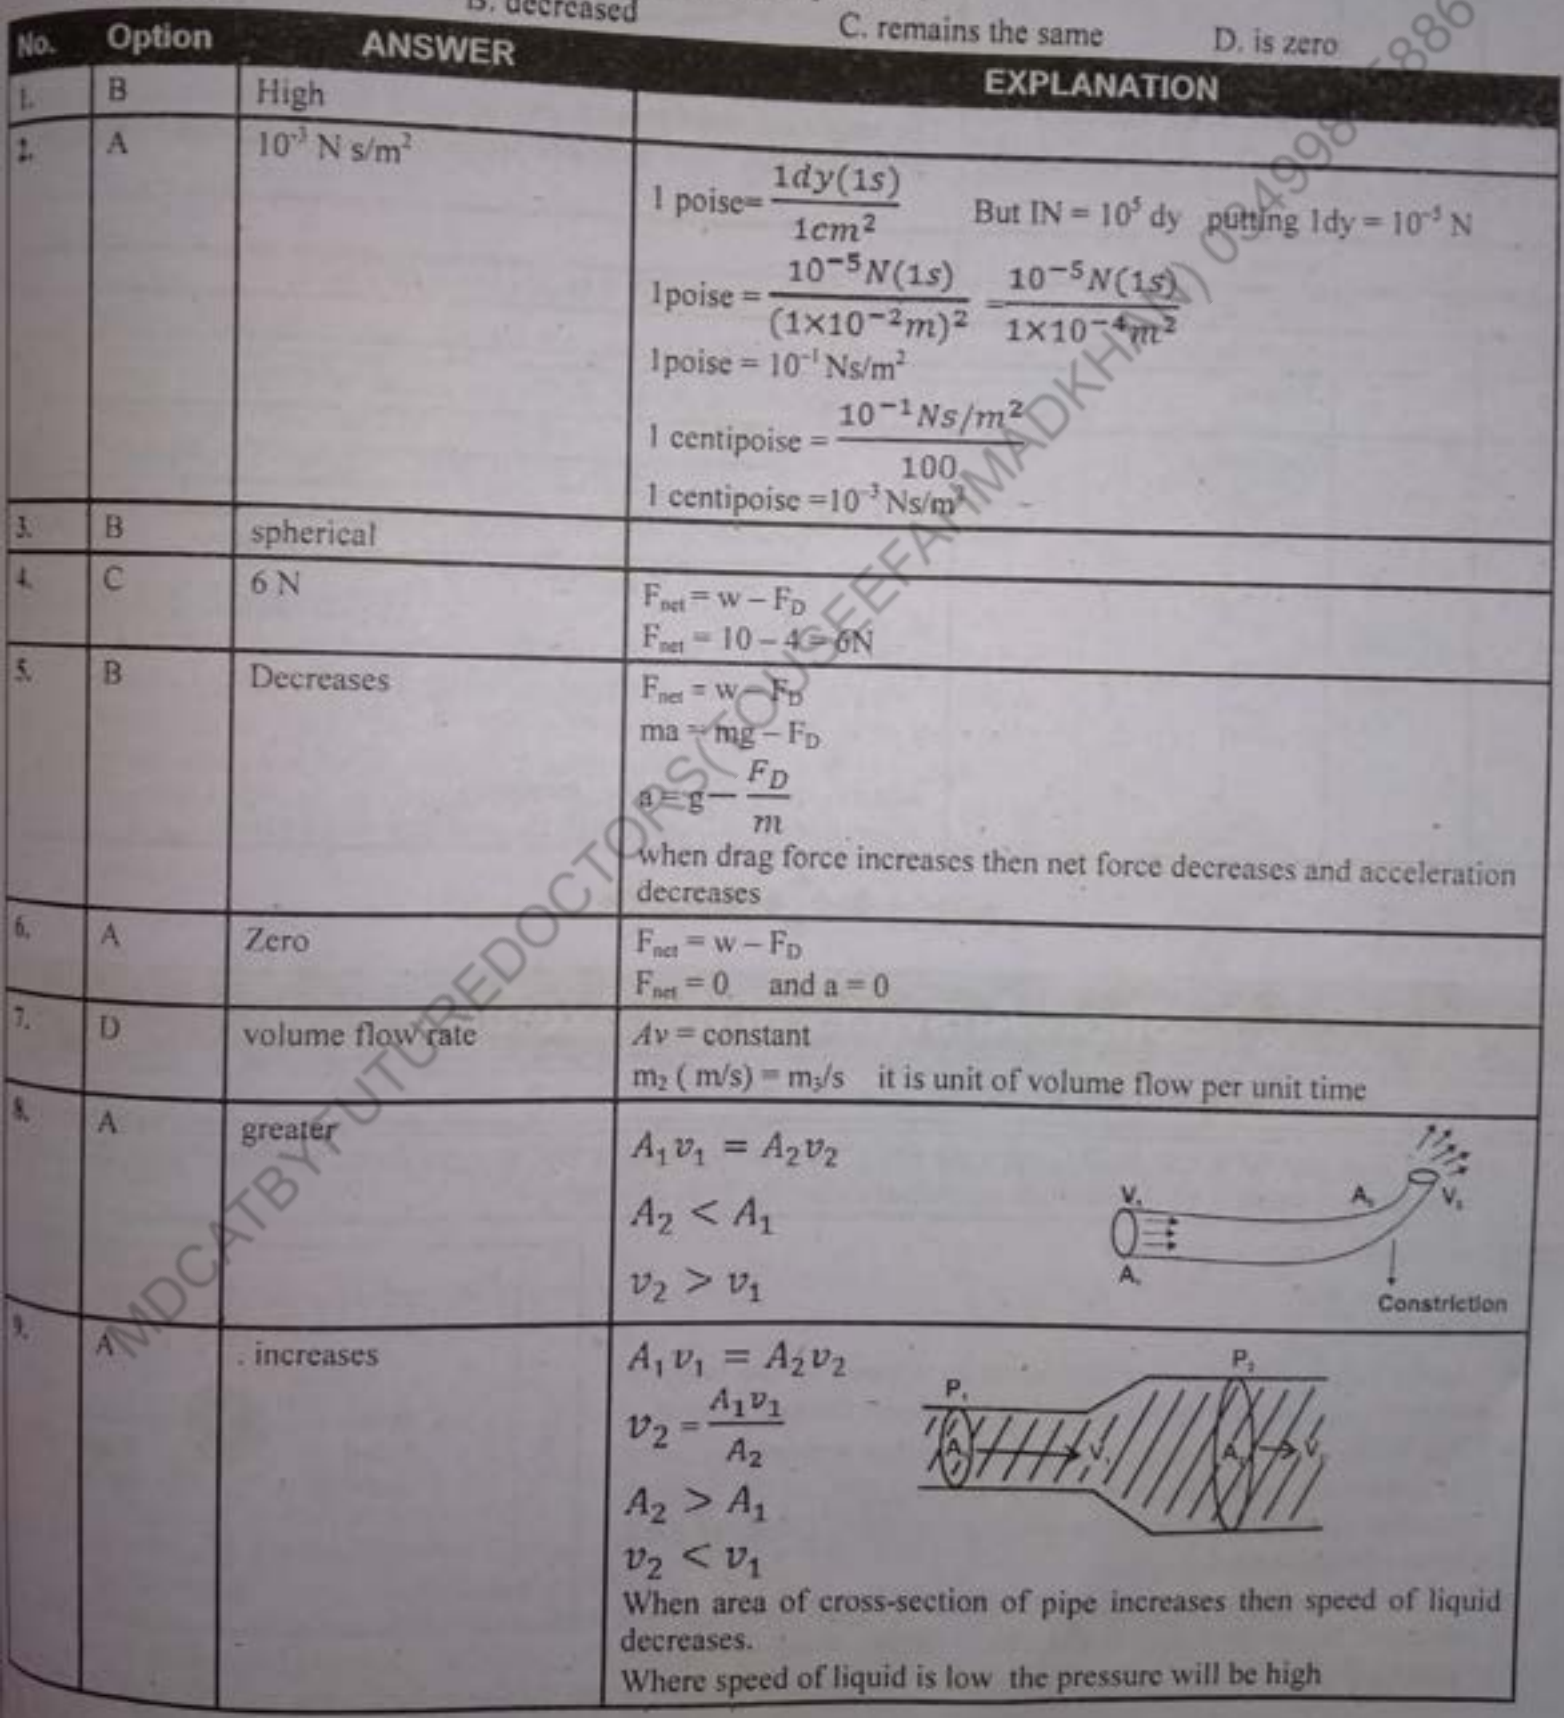 B. decreased
C. remains the same
D. is zero
No. Option ANSWER EXPLANATION
1. B High
2. A 10⁻³ N s/m²
1 poise= 1dy(1s) / 1cm² But IN = 10⁵ dy putting 1dy = 10⁻⁵ N
1poise = 10⁻⁵N(1s) / (1×10⁻²m)² = 10⁻⁵N(1s) / 1×10⁻⁴m²
1poise = 10⁻¹ Ns/m²
1 centipoise = 10⁻¹Ns/m² / 100
1 centipoise =10⁻³ Ns/m²
3. B spherical
4. C 6 N
Fnet = w – FD
Fnet = 10 – 4 = 6N
5. B Decreases
Fnet = w – FD
ma = mg – FD
a = g – FD / m
when drag force increases then net force decreases and acceleration
decreases
6. A Zero
Fnet = w – FD
Fnet = 0 and a = 0
7. D volume flow rate
Av = constant
m₂ ( m/s) = m₃/s it is unit of volume flow per unit time
8. A greater
A₁v₁ = A₂v₂
A₂ < A₁
v₂ > v₁
V₁ A₁ A₂ V₂
Constriction
9. A . increases
A₁v₁ = A₂v₂
v₂ = A₁v₁ / A₂
A₂ > A₁
v₂ < v₁
P₁ A V₁ P₂ A V
When area of cross-section of pipe increases then speed of liquid
decreases.
Where speed of liquid is low the pressure will be high
MDCATBYFUTUREDOCTORS(TOUSEEFAHMADKHAN)